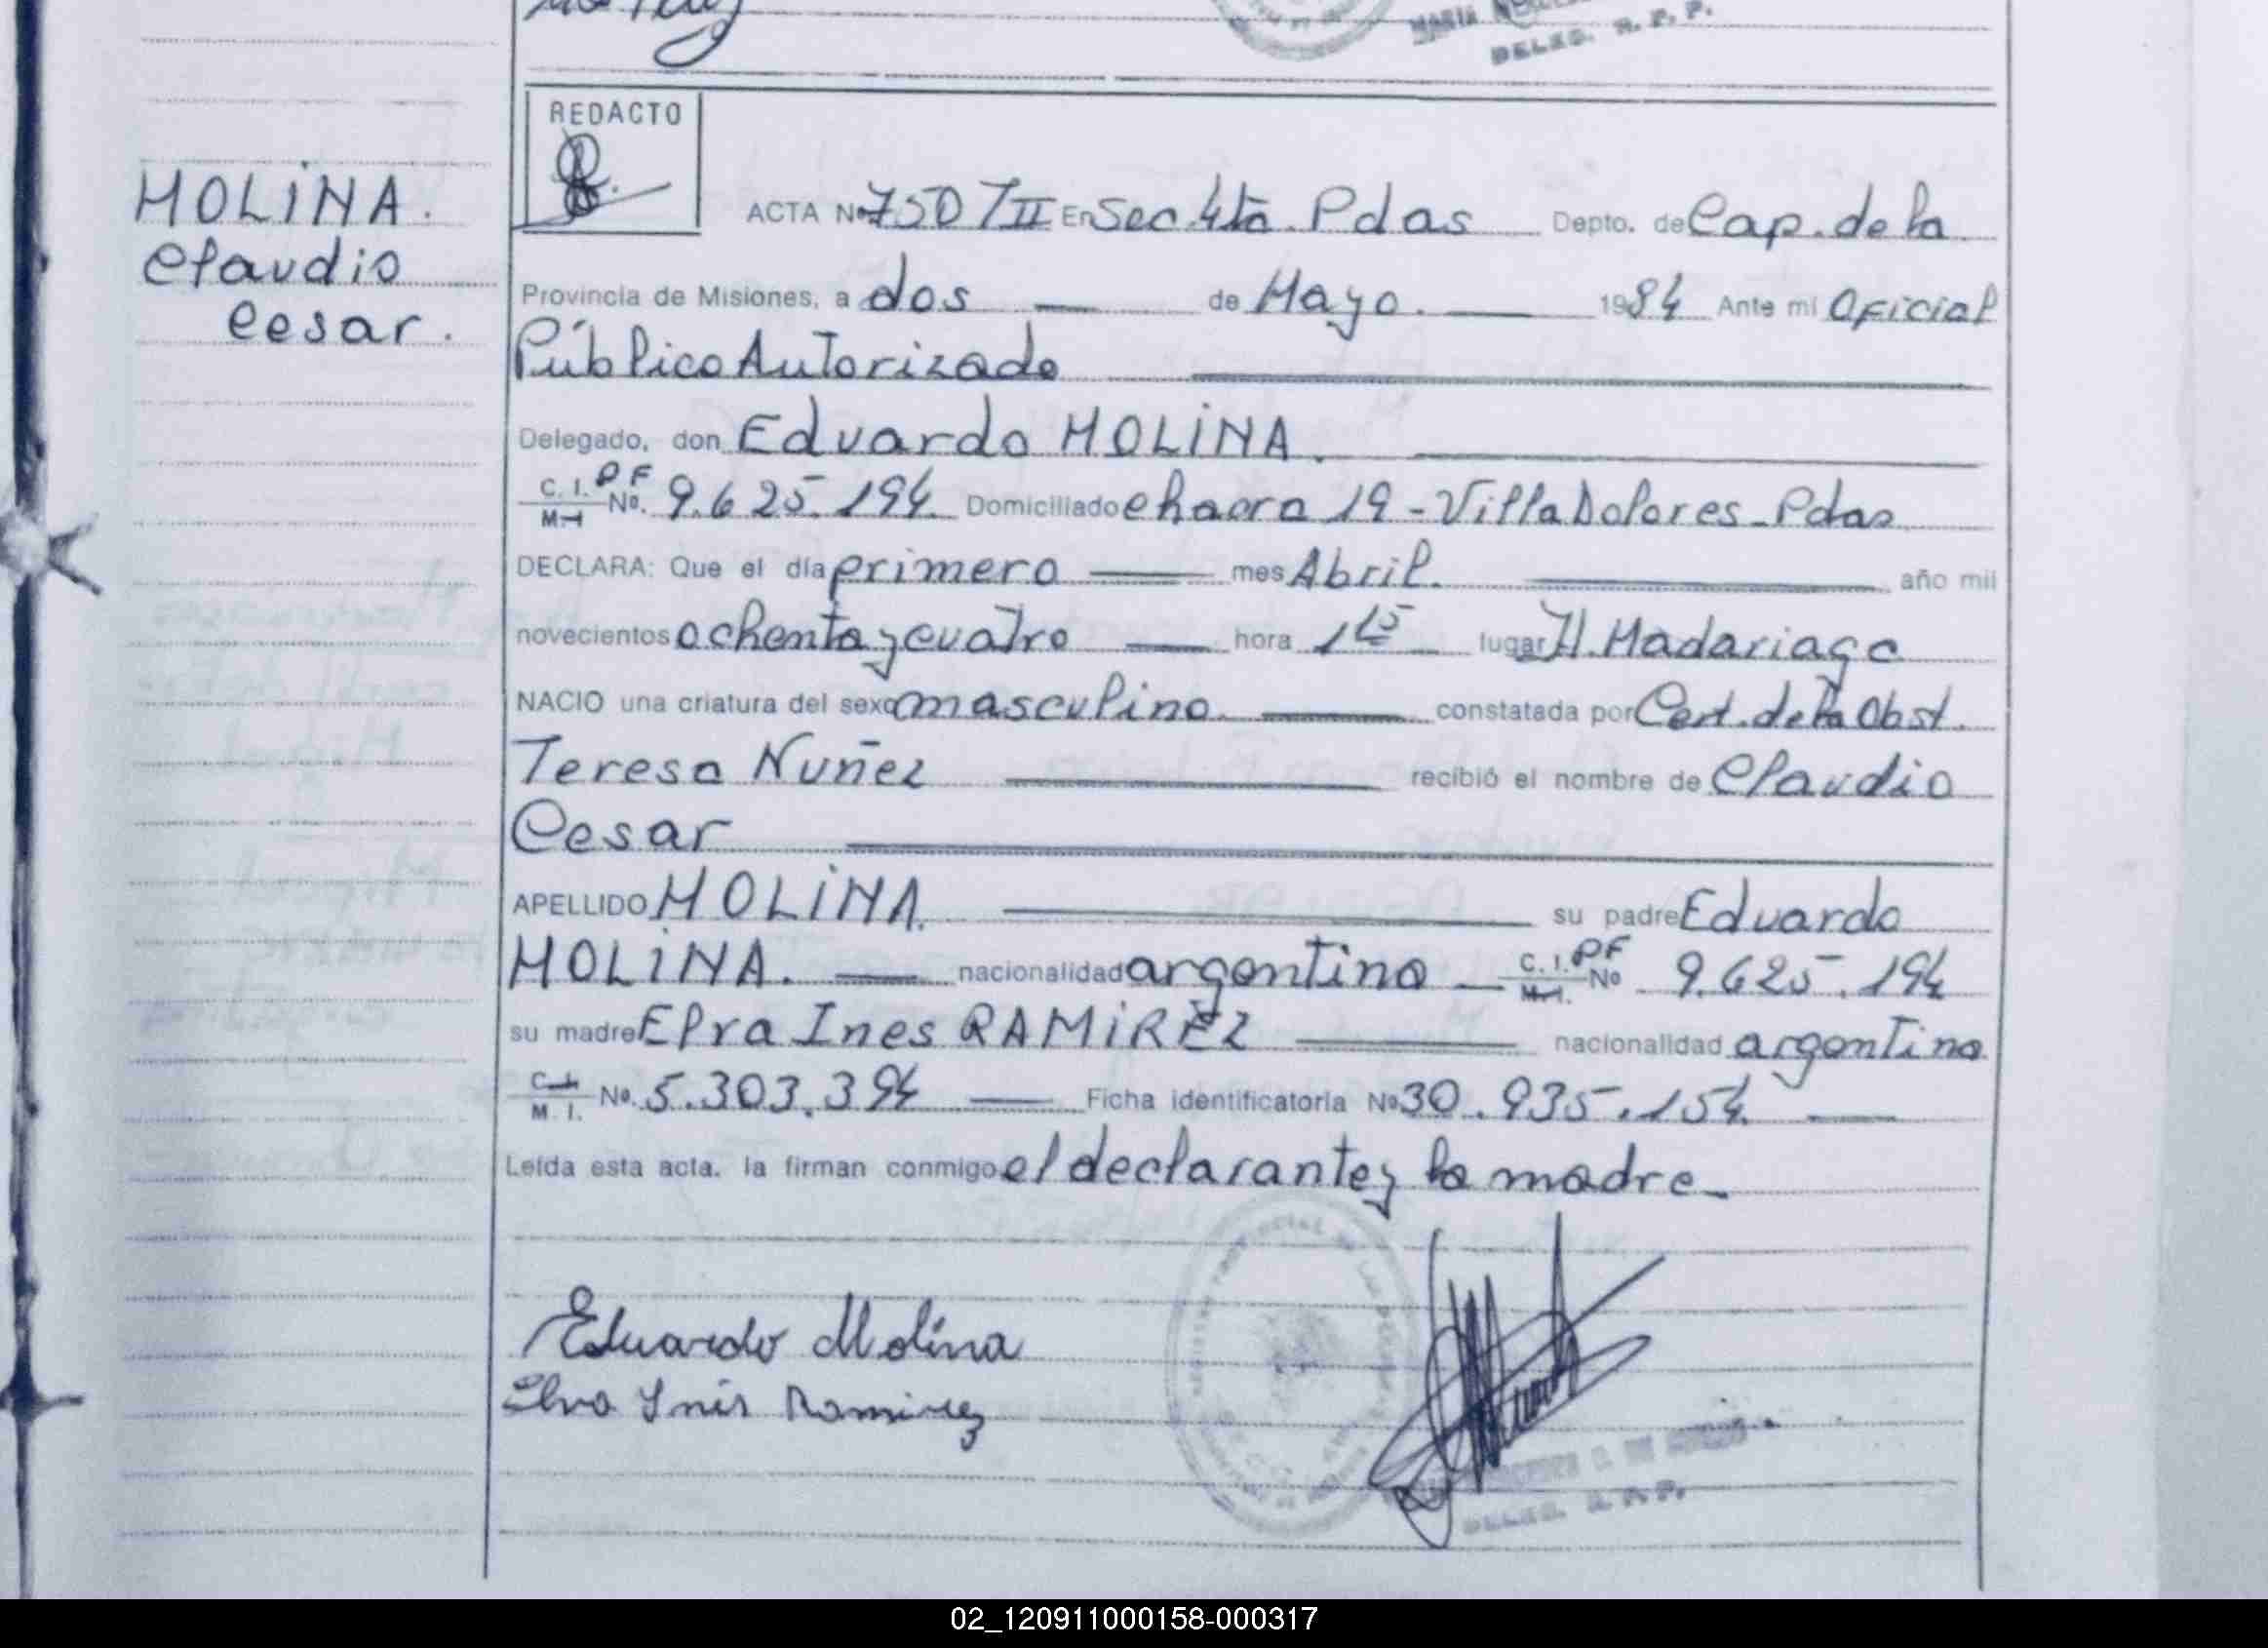 DELEG. R. P. P.
REDACTO
MOLINA.
Claudio
Cesar.
ACTA Nº 750 TII En Sec. 4ta. Pdas Depto. de Cap. de la
Provincia de Misiones, a dos de Mayo. 1984 Ante mi Oficial
Público Autorizado
Delegado, don Eduardo MOLINA.
C. I. PF
M. I. Nº. 9.625.194. Domiciliado Chacra 19 - Villa Dolores - Pdas
DECLARA: Que el día primero mes Abril. año mil
novecientos ochenta y cuatro hora 1 15 lugar H. Madariaga
NACIO una criatura del sexo masculino. constatada por Cert. de la Obst.
Teresa Nuñez recibió el nombre de Claudio
Cesar
APELLIDO MOLINA. su padre Eduardo
MOLINA. nacionalidad argentino C. I. PF M. I. Nº 9.625.194
su madre Elra Ines RAMIREZ nacionalidad argentina
C. I. M. I. Nº. 5.303.394 Ficha identificatoria Nº 30.935.154.
Leída esta acta. la firman conmigo el declarante y la madre.
Eduardo Molina
Elva Inés Ramirez
DELEG. R. P. P.
02_120911000158-000317